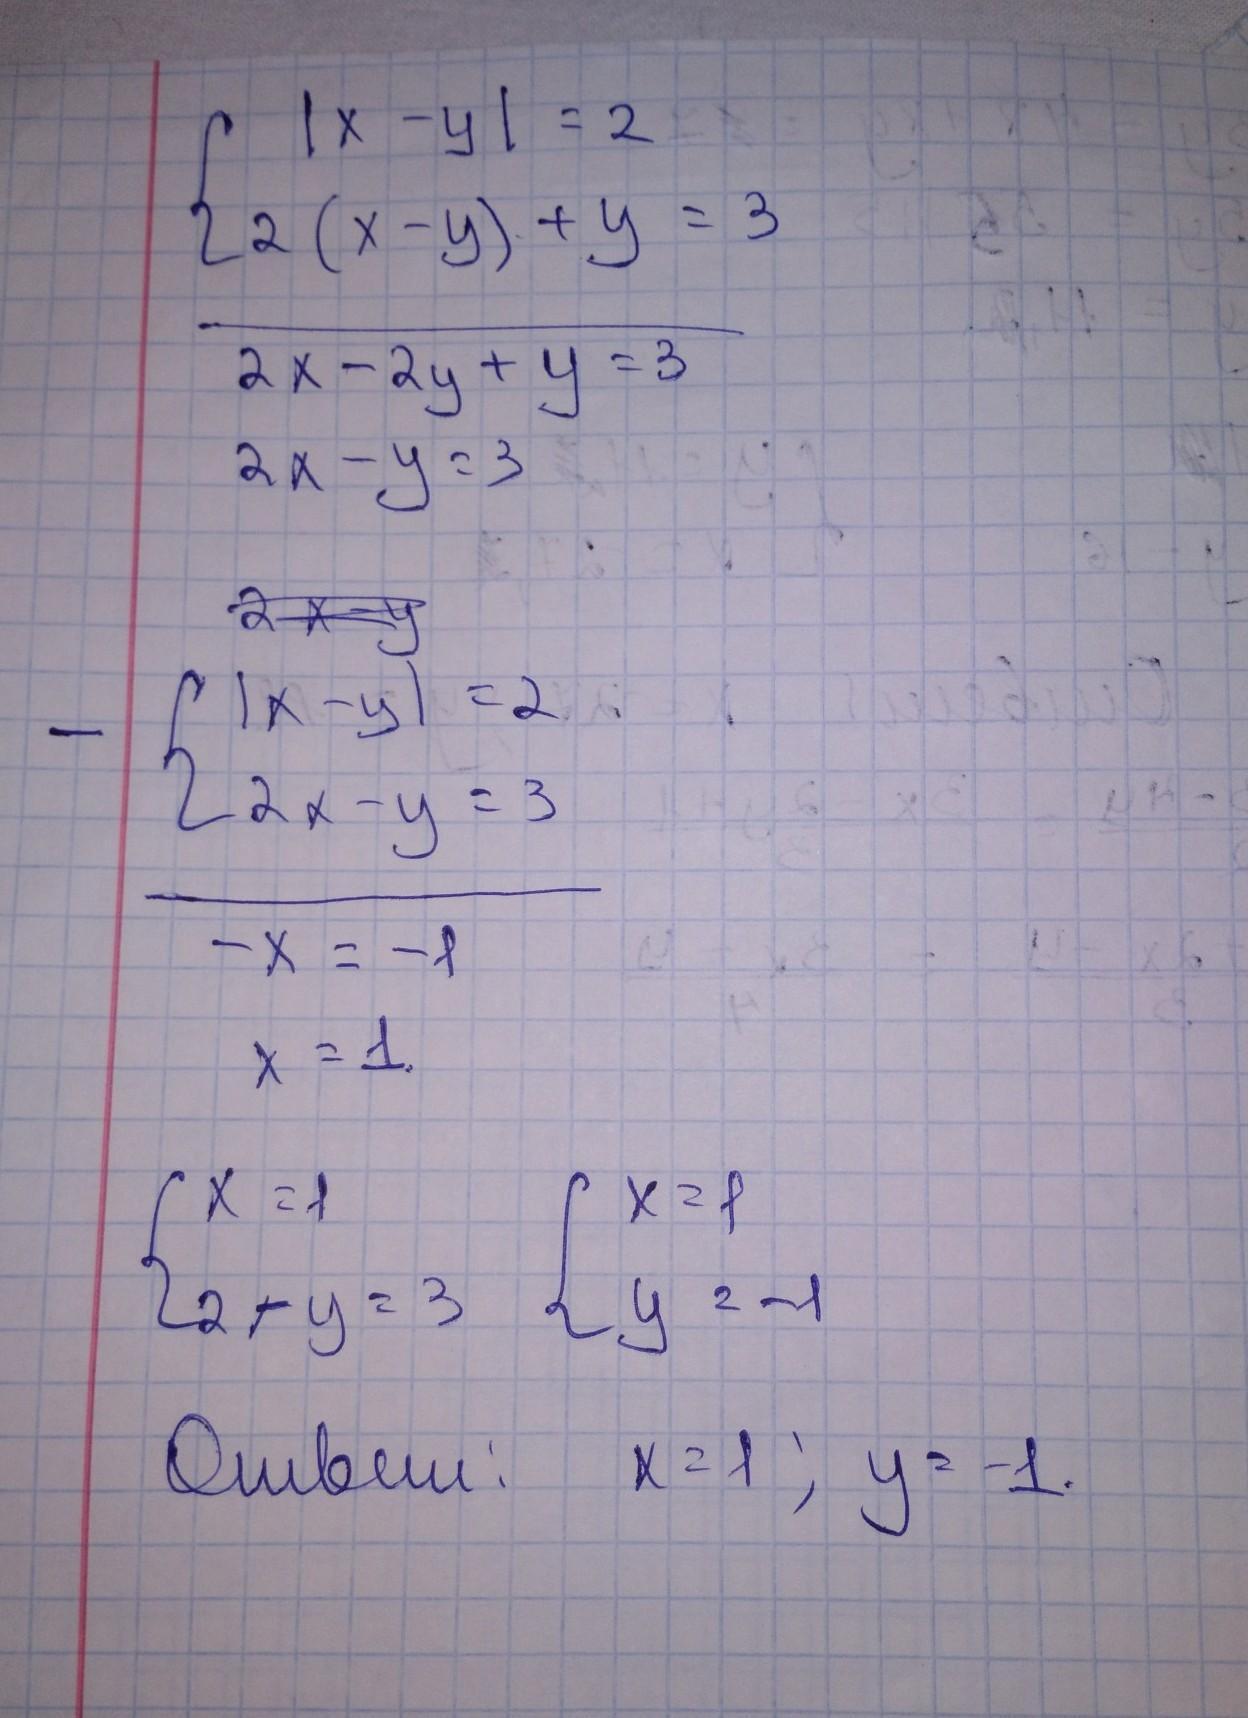 |x - y| = 2
2(x - y) + y = 3
2x - 2y + y = 3
2x - y = 3
2x - y
- |x - y| = 2
2x - y = 3
-x = -1
x = 1.
x = 1 x = 1
2 - y = 3 y = -1
Ответ: x = 1; y = -1.